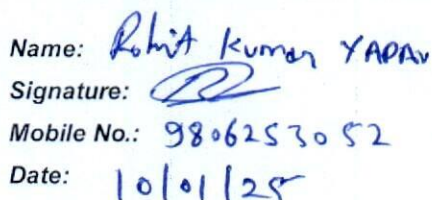 Name: Rohit Kumar YADAV
Signature:
Mobile No.: 9806253052
Date: 10/01/25